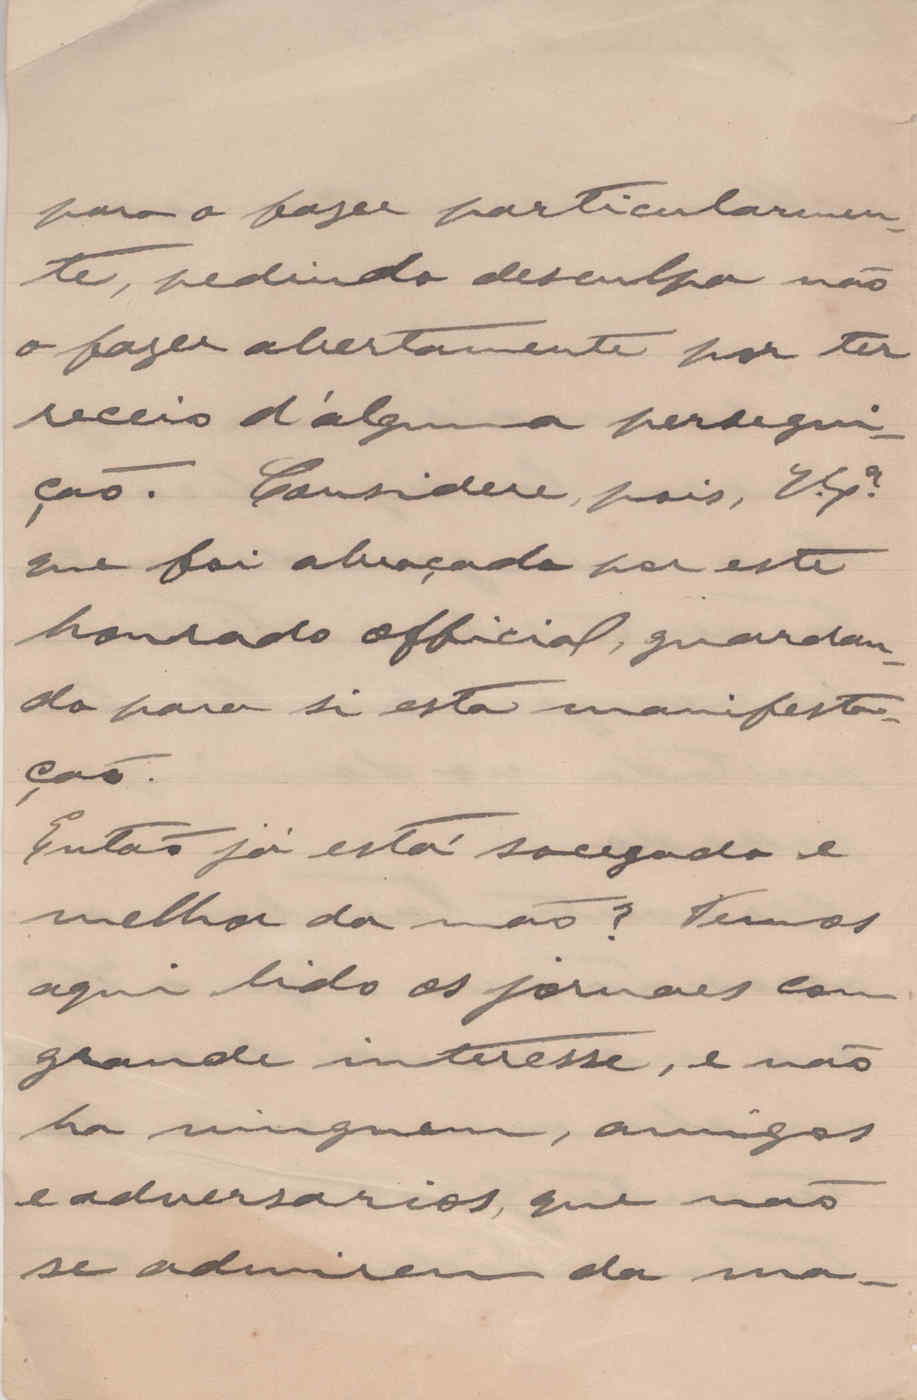 para o fazer particularmen-
te, pedindo desculpa não
o fazer abertamente por ter
receio d'alguma persegui-
ção. Considere, pois, V. Exª
que foi abraçado por este
honrado official, guardan-
do para si esta manifesta-
ção.
Então já está socegado e
melhor da mão? Temos
aqui lido os jornaes com
grande interesse, e não
ha ninguem, amigos
e adversarios, que não
se admirem da ma-